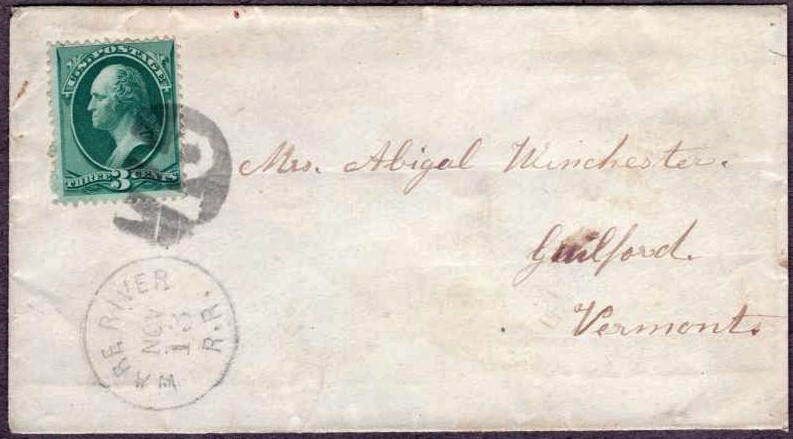 U.S. POSTAGE
THREE 3 CENTS
Mrs. Abigal Winchester.
Guilford.
Vermont.
WARE RIVER R.R.
NOV
13